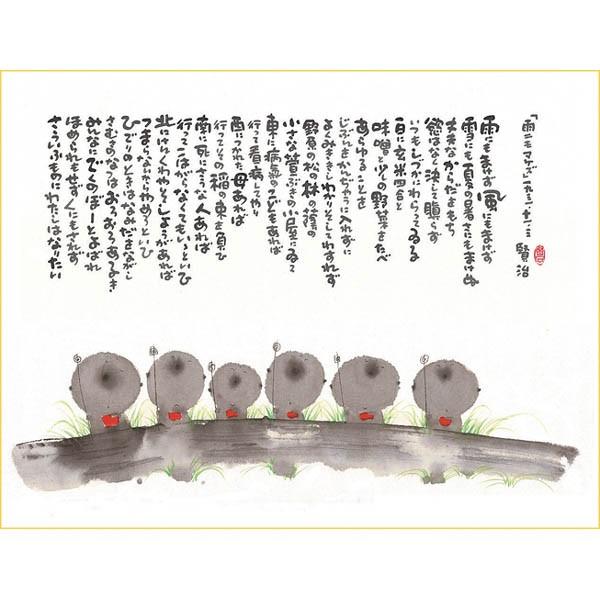 「雨ニモマケズ」一九三一・十一・三 賢治
雨にもまけず 風にもまけず
雪にも夏の暑さにもまけぬ
丈夫なからだをもち
慾はなく決して瞋らず
いつもしづかにわらってゐる
一日に玄米四合と
味噌と少しの野菜をたべ
あらゆることを
じぶんをかんぢゃうに入れずに
よくみききしわかりそしてわすれず
野原の松の林の蔭の
小さな萱ぶきの小屋にゐて
東に病気のこどもあれば
行って看病してやり
西につかれた母あれば
行ってその稲の束を負ひ
南に死にさうな人あれば
行ってこはがらなくてもいゝといひ
北にけんくゎやそしょうがあれば
つまらないからやめろといひ
ひでりのときはなみだをながし
さむさのなつはおろおろあるき
みんなにでくのぼーとよばれ
ほめられもせずくにもされず
さういふものにわたしはなりたい